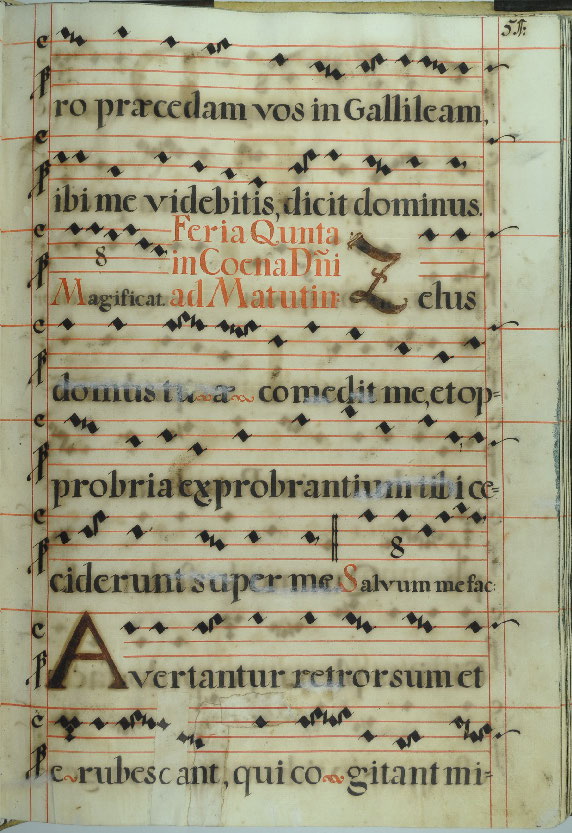 51:
ro præcedam vos in Gallileam,
ibi me videbitis, dicit dominus.
Feria Qunta
8 in Coena Dñi
Magificat. ad Matutin: Zelus
domus tu a comedit me, et op-
probria exprobrantium tibi ce-
8
ciderunt super me. Salvum me fac:
Avertantur retrorsum et
e rubescant, qui co gitant mi-